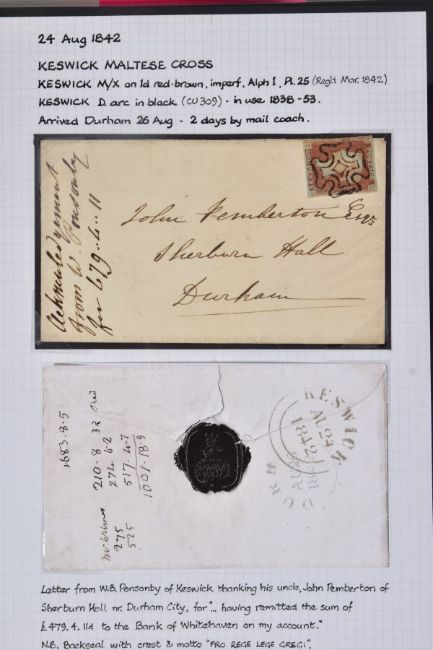 24 Aug 1842
KESWICK MALTESE CROSS
KESWICK M/X on 1d red-brown, imperf, Alph I, Pl. 25 (Reg'd Mar. 1842)
KESWICK D. arc in black (CU309) - in use 1838-53.
Arrived Durham 26 Aug - 2 days by mail coach.
Acknowledgment
from W. Ponsonby
for 479.4..11
John Pemberton Esqr
Sherburn Hall
Durham
1683.8.5
210.8
274.6.2
517.4.7
1001.18.9
275
525
KESWICK
AU 24
1842
Letter from W.B. Ponsonby of Keswick thanking his uncle, John Pemberton of
Sherburn Hall nr. Durham City, for "... having remitted the sum of
£479.4.11d to the Bank of Whitehaven on my account."
N.B. Backseal with crest & motto "PRO REGE LEGE GREGI".